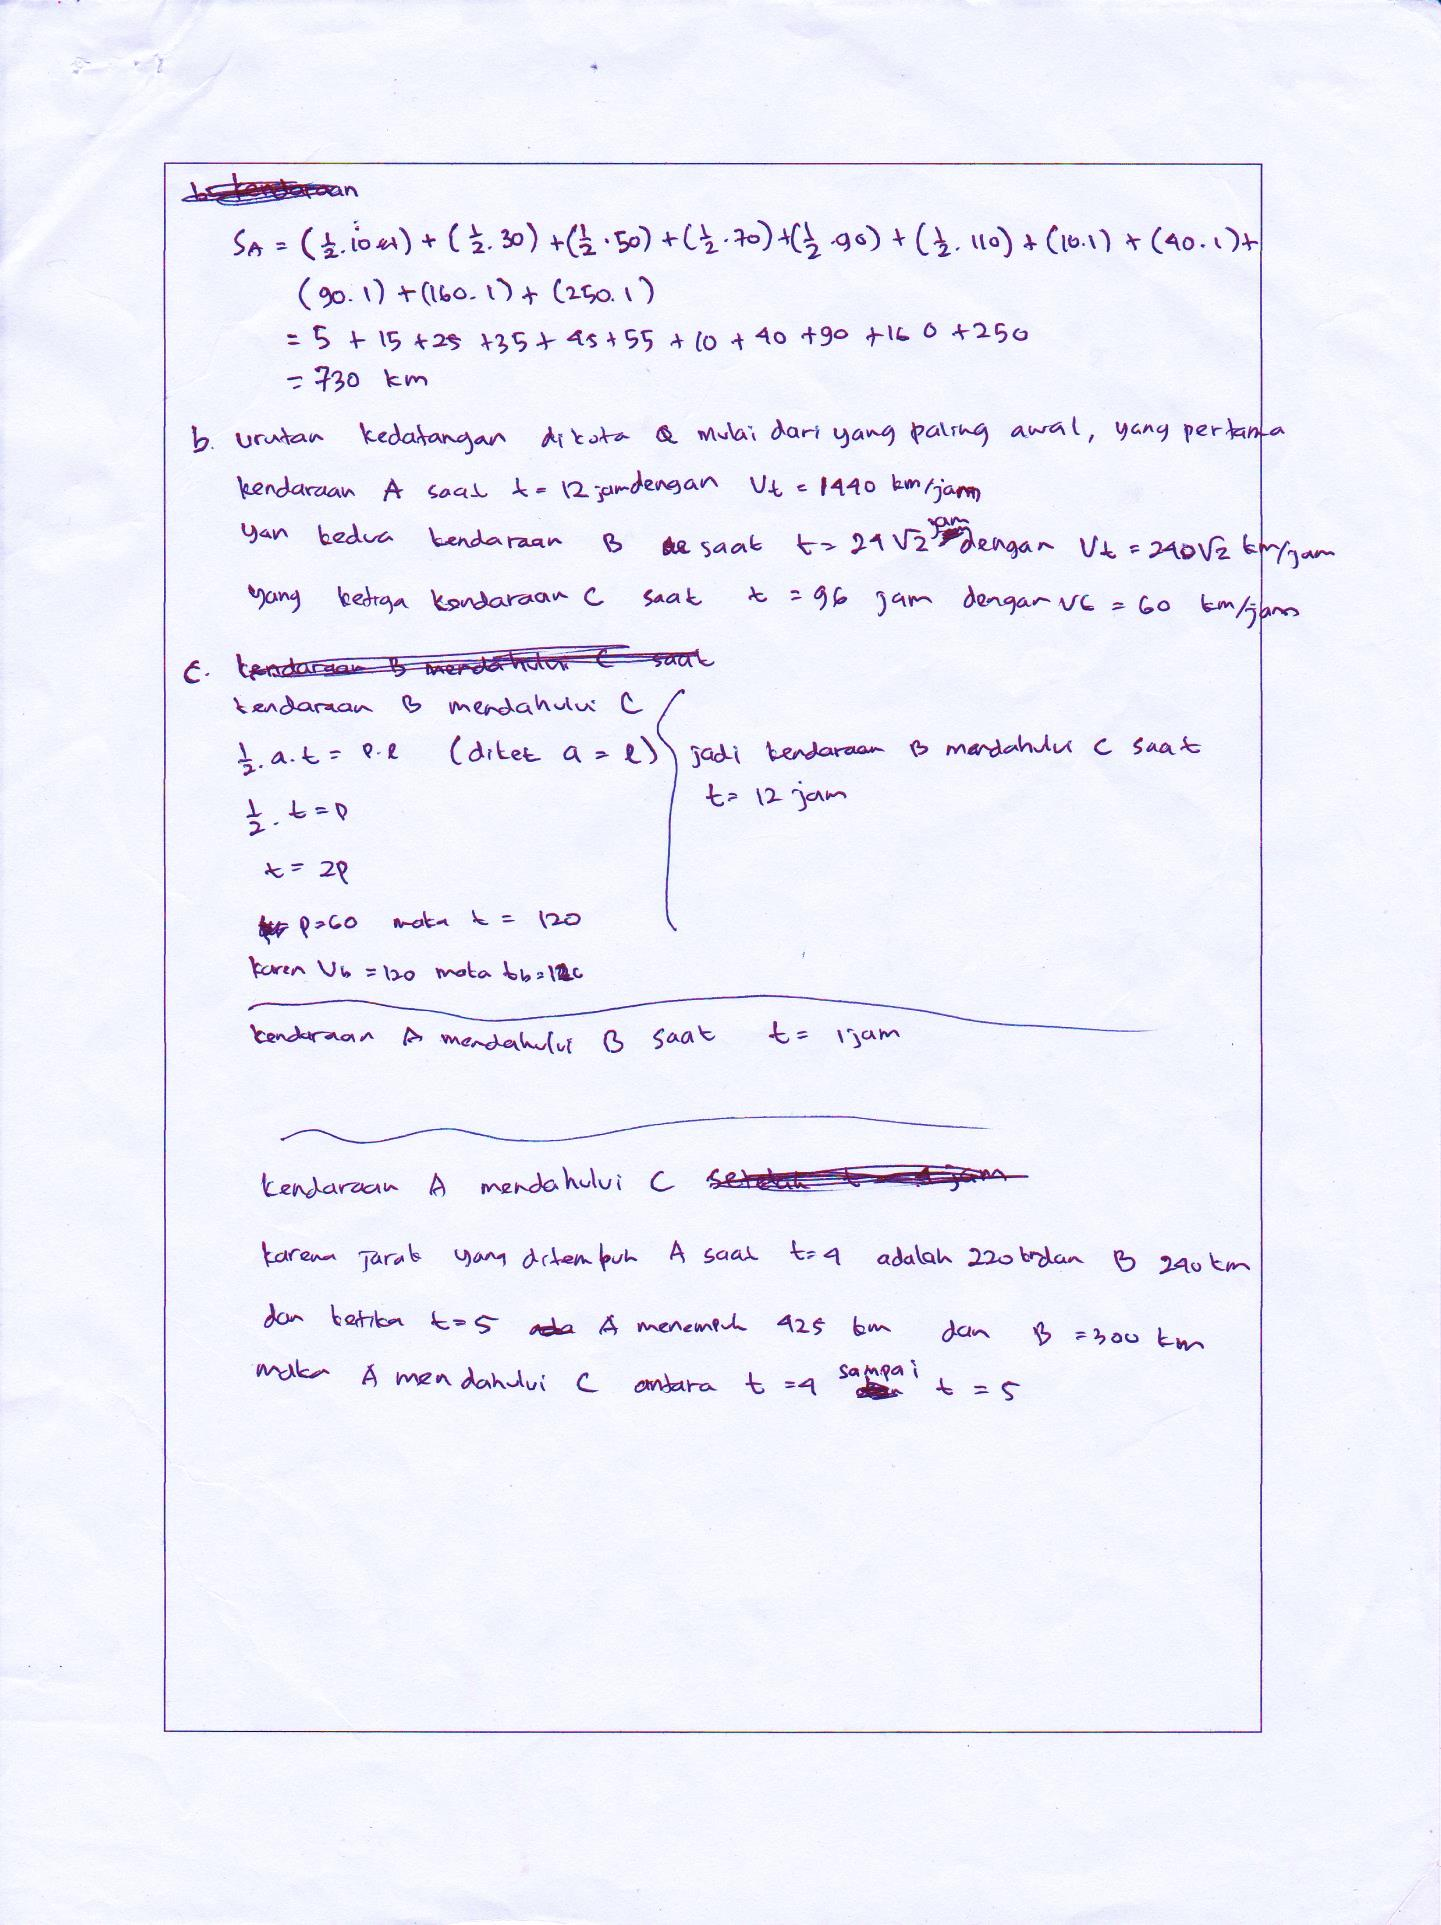 b. kendaraan
SA = (½.10.1) + (½.30) + (½.50) + (½.70) + (½.90) + (½.110) + (10.1) + (40.1) +
(90.1) + (160.1) + (250.1)
= 5 + 15 + 25 + 35 + 45 + 55 + 10 + 40 + 90 + 160 + 250
= 730 km
b. urutan kedatangan di kota Q mulai dari yang paling awal, yang pertama
kendaraan A saat t = 12 jam dengan Vt = 1440 km/jam
yan kedua kendaraan B saat t = 24√2 jam dengan Vt = 240√2 km/jam
yang ketiga kendaraan C saat t = 96 jam dengan Vt = 60 km/jam
c. kendaraan B mendahului C saat
kendaraan B mendahului C
½.a.t = p.l (diket a = l)
½.t = p
t = 2p
p = 60 maka t = 120
karen Vb = 120 maka tb = 12
jadi kendaraan B mendahului C saat
t = 12 jam
kendaraan A mendahului B saat t = 1 jam
kendaraan A mendahului C setelah t = 4 jam
karena jarak yang ditempuh A saat t=4 adalah 220 km dan B 240 km
dan ketika t=5 A menempuh 425 km dan B = 300 km
maka A mendahului C antara t = 4 sampai t = 5